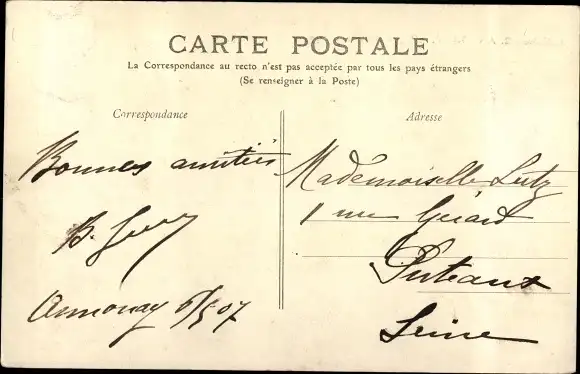 CARTE POSTALE
La Correspondance au recto n'est pas acceptée par tous les pays étrangers
(Se renseigner à la Poste)
Correspondance
Adresse
Bonnes amitiés
B.
Annonay 6/5 07
Mademoiselle Lutz
1 rue Gérard
Puteaux
Seine